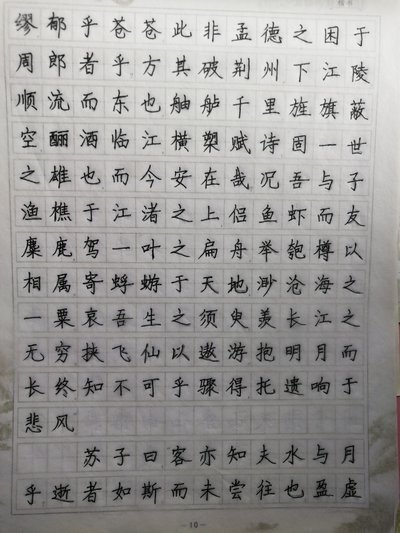 楷书
缪郁乎苍苍此非孟德之困于
周郎者乎方其破荆州下江陵
顺流而东也舳舻千里旌旗蔽
空酾酒临江横槊赋诗固一世
之雄也而今安在哉况吾与子
渔樵于江渚之上侣鱼虾而友
麋鹿驾一叶之扁舟举匏樽以
相属寄蜉蝣于天地渺沧海之
一粟哀吾生之须臾羡长江之
无穷挟飞仙以遨游抱明月而
长终知不可乎骤得托遗响于
悲风
苏子曰客亦知夫水与月
乎逝者如斯而未尝往也盈虚
-10-